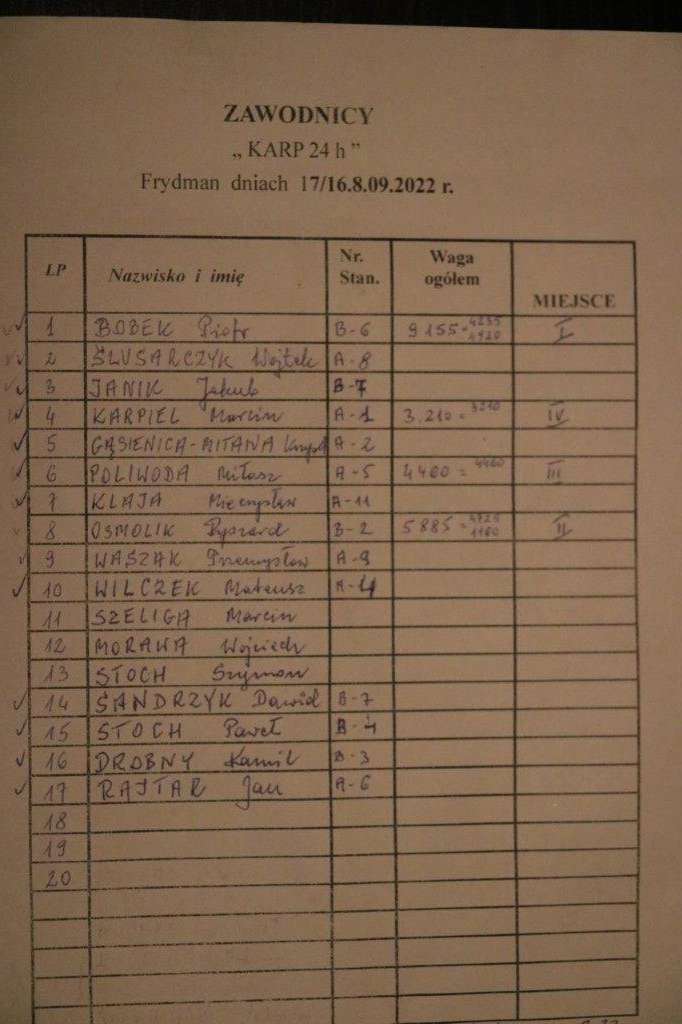 ZAWODNICY
„ KARP 24 h ”
Frydman dniach 17/16.8.09.2022 r.
LP Nazwisko i imię Nr. Stan. Waga ogółem MIEJSCE
1 BOBEK Piotr B-6 9155 = 4235 4920 I
2 ŚLUSARCZYK Wojtek A-8
3 JANIK Jakub B-7
4 KARPIEL Marcin A-1 3.210 = 3210 IV
5 GĄSIENICA- A-2
6 POLIWODA Miłosz A-5 4460 = 4460 III
7 KLAJA Mieczysław A-11
8 OSMOLIK Ryszard B-2 5885 = 4725 1160 II
9 WASZAK Przemysław A-9
10 WILCZEK Mateusz A-4
11 SZELIGA Marcin
12 MORAWA Wojciech
13 STOCH Szymon
14 SANDRZYK Dawid B-7
15 STOCH Paweł
16 DROBNY Kamil B-3
17 RAJTAR Jan A-6
18
19
20